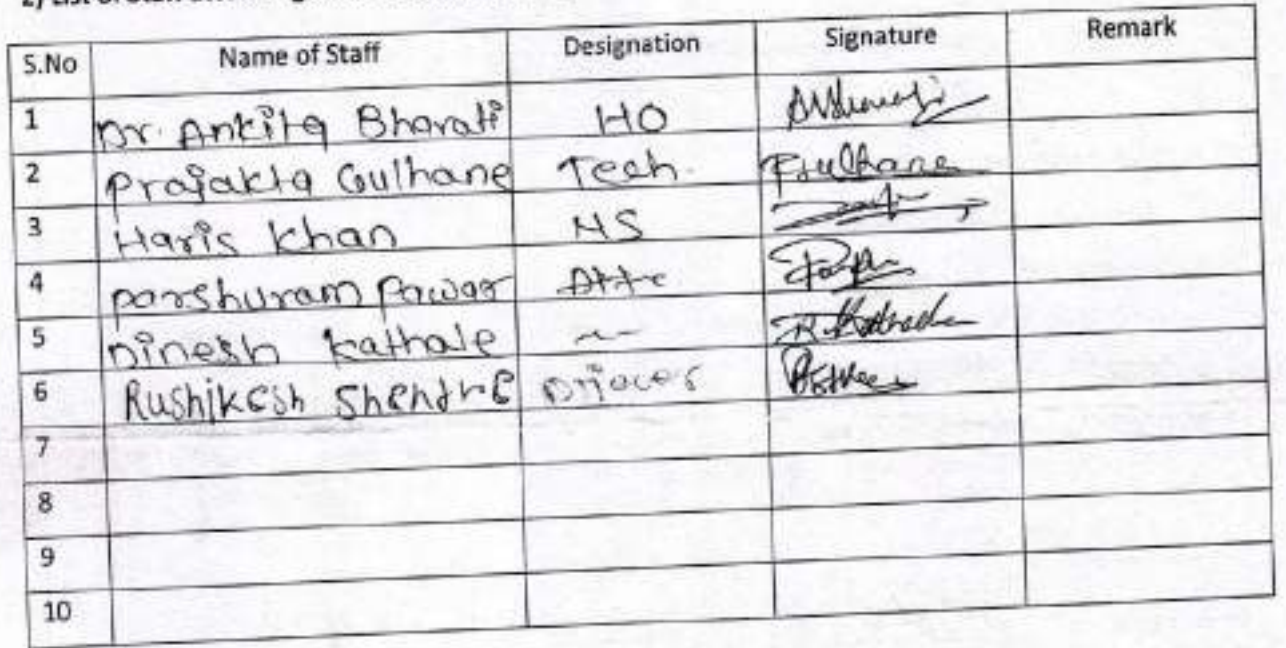 2) List of Staff
S.No Name of Staff Designation Signature Remark
1 Dr. Ankita Bharati HO
2 Prajakta Gulhane Tech. PGulhane
3 Haris Khan
4 parshuram Pawar Atte
5 Dinesh Kathale
6 Rushikesh Shendre
7
8
9
10